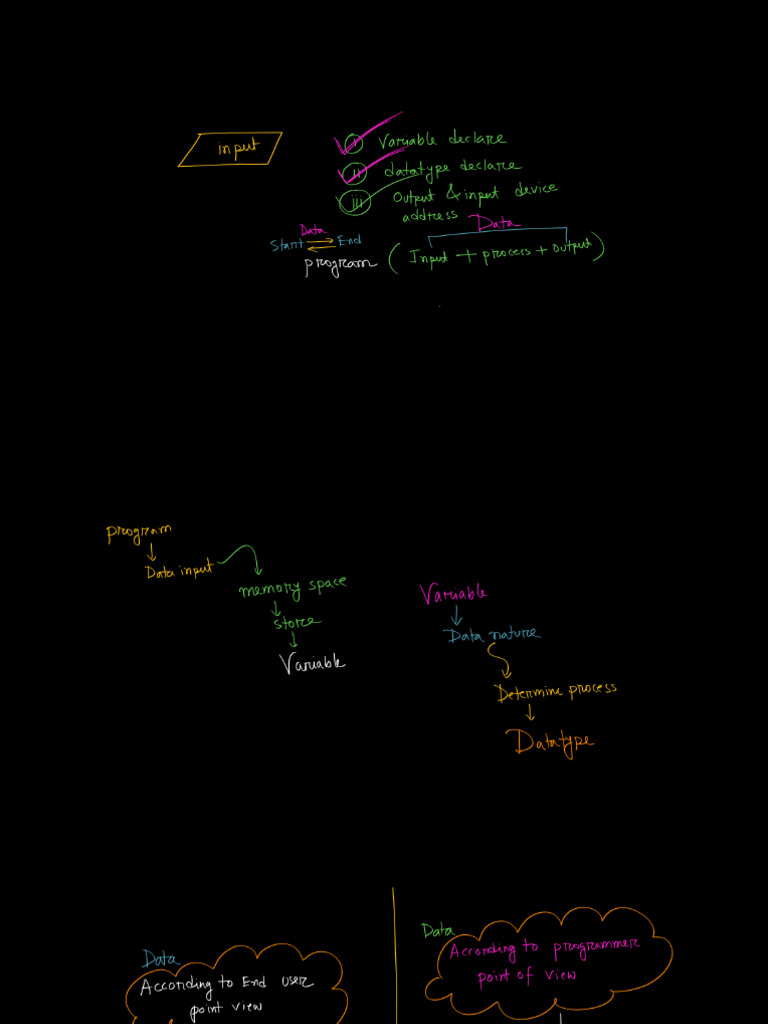 input
i Variable declare
ii datatype declare
iii Output & input device
address
Data
Data
Start End
program (Input + process + output)
program
Data input
memory space
store
Variable
Variable
Data nature
Determine process
Datatype
Data
According to End user
point view
Data
According to programmer
point of view